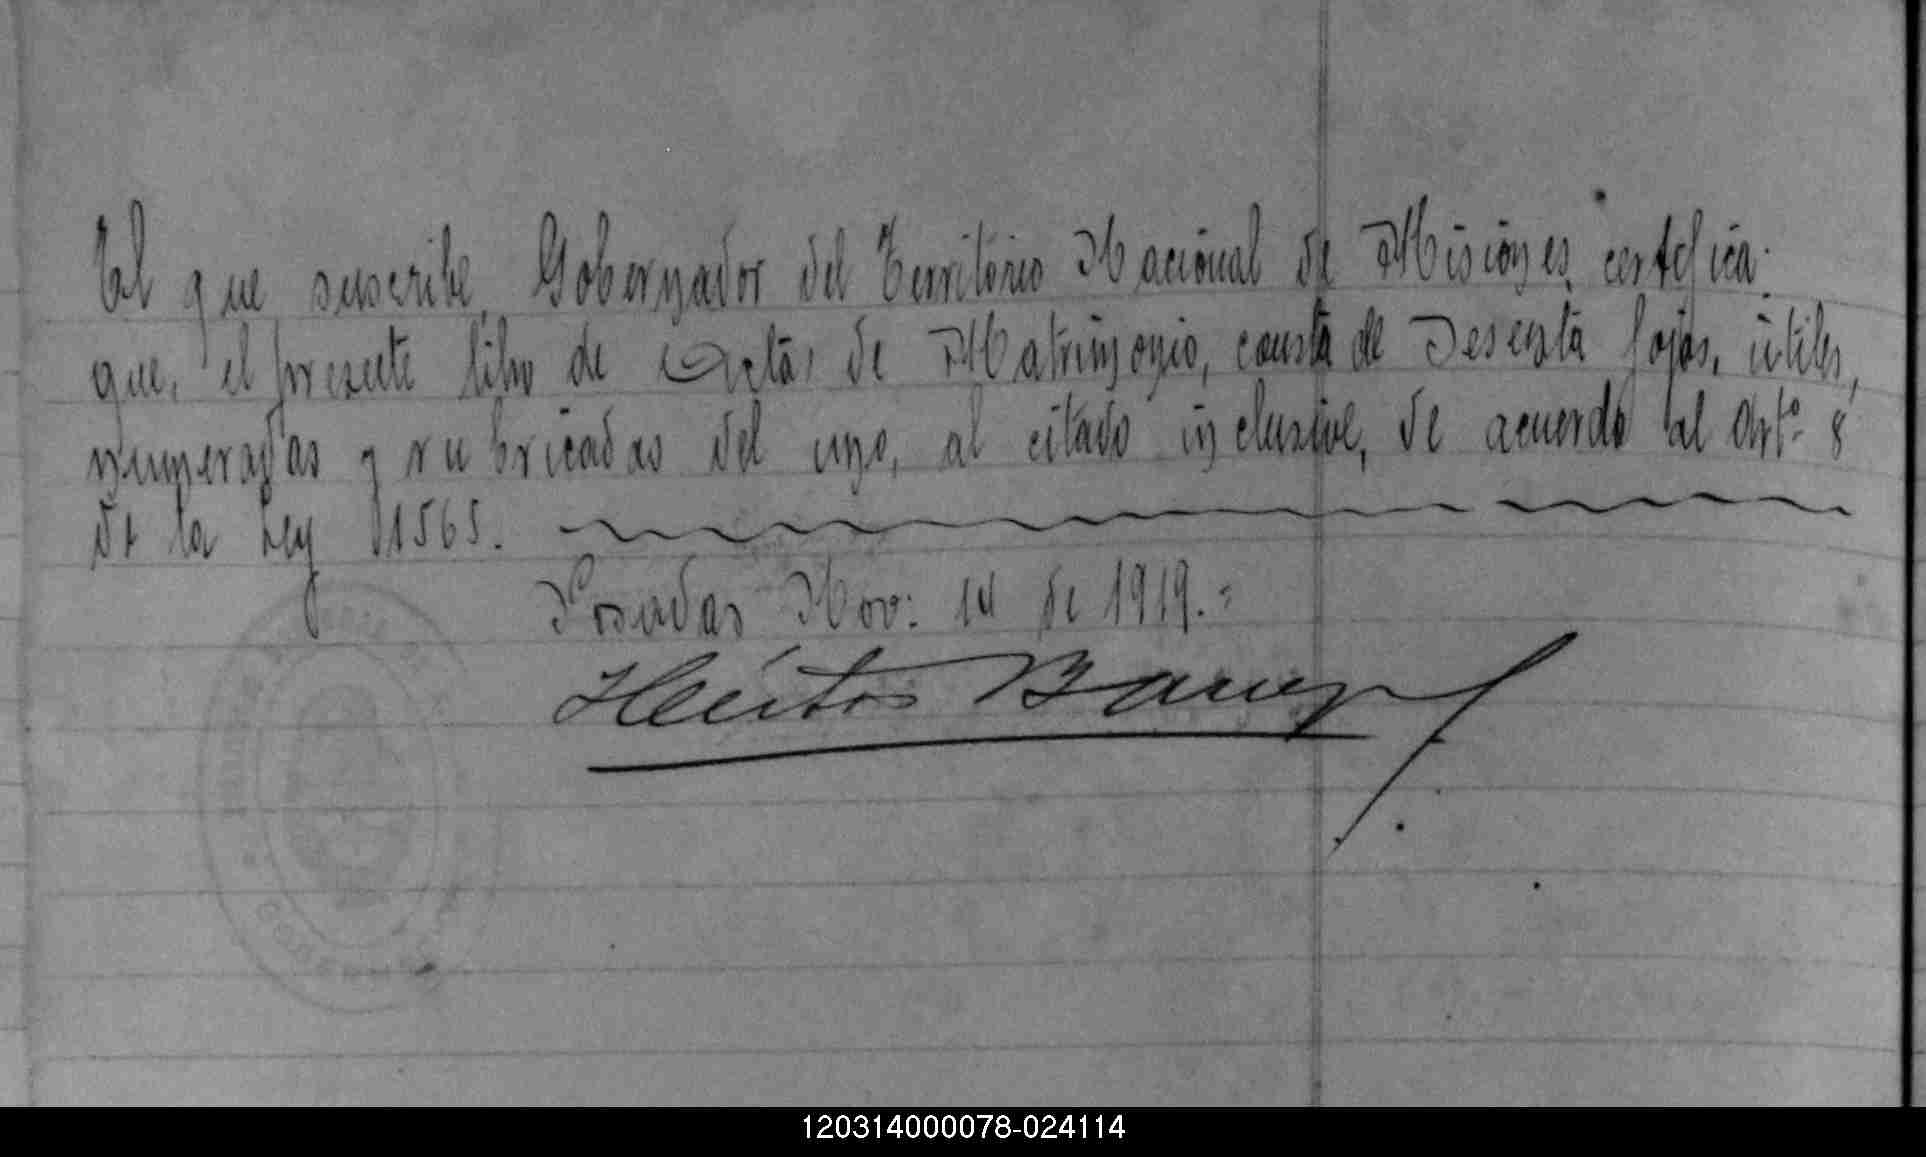 El que suscribe, Gobernador del Territorio Nacional de Misiones, certifica:
que, el presente libro de Actas de Matrimonio, consta de Sesenta fojas, útiles,
numeradas y rubricadas del uno, al citado inclusive, de acuerdo al Art.º 8
de la Ley 1565.
Posadas Nov: 14 de 1919.=
Héctor Barreyro
120314000078-024114